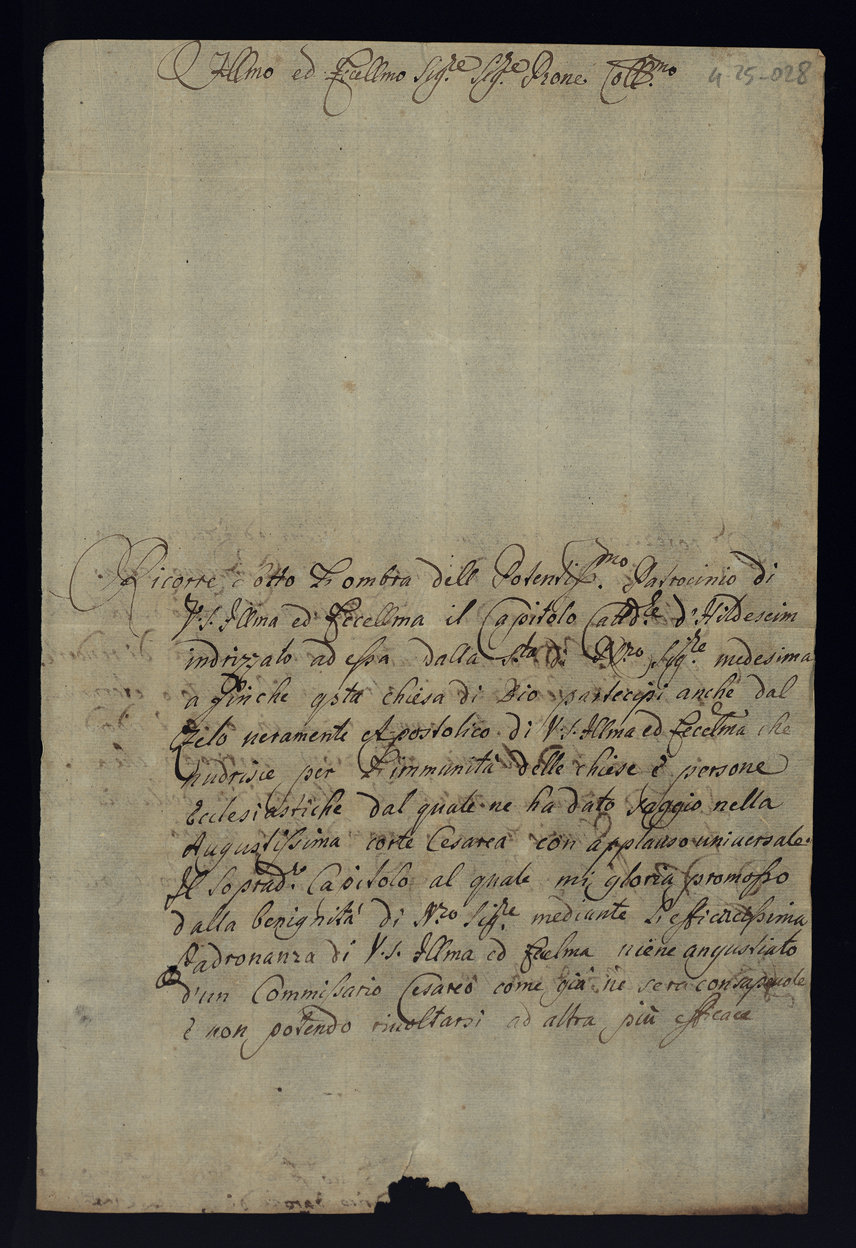 Illmo ed Eccellmo Sig.re Sig.re Prone Coll.mo
4 25-028
Ricorre sotto L'ombra dell Potentiss.mo Patrocinio di
V.S. Illma ed Eccellma il Capitolo Catt.dle d'Hildeseim
indrizzato ad essa dalla S.ta di N.ro Sig.re medesima
afinche qsta chiesa di Dio partecipi anche dal
Zelo veramente Apostolico di V.S. Illma ed Eccelma che
nudrisce per L'immunità delle chiese è persone
Ecclesiastiche dal quale ne ha dato saggio nella
Augustissima corte Cesarea con applauso universale.
Il soprad.o Capitolo al quale mi gloria promosso
dalla benignità di N.ro Sig.re mediante L'efficacissima
Padronanza di V.S. Illma ed Eccelma viene angustiato
d'un Commissario Cesareo come già ne serà consapevole
è non potendo rivoltarsi ad altra più efficace